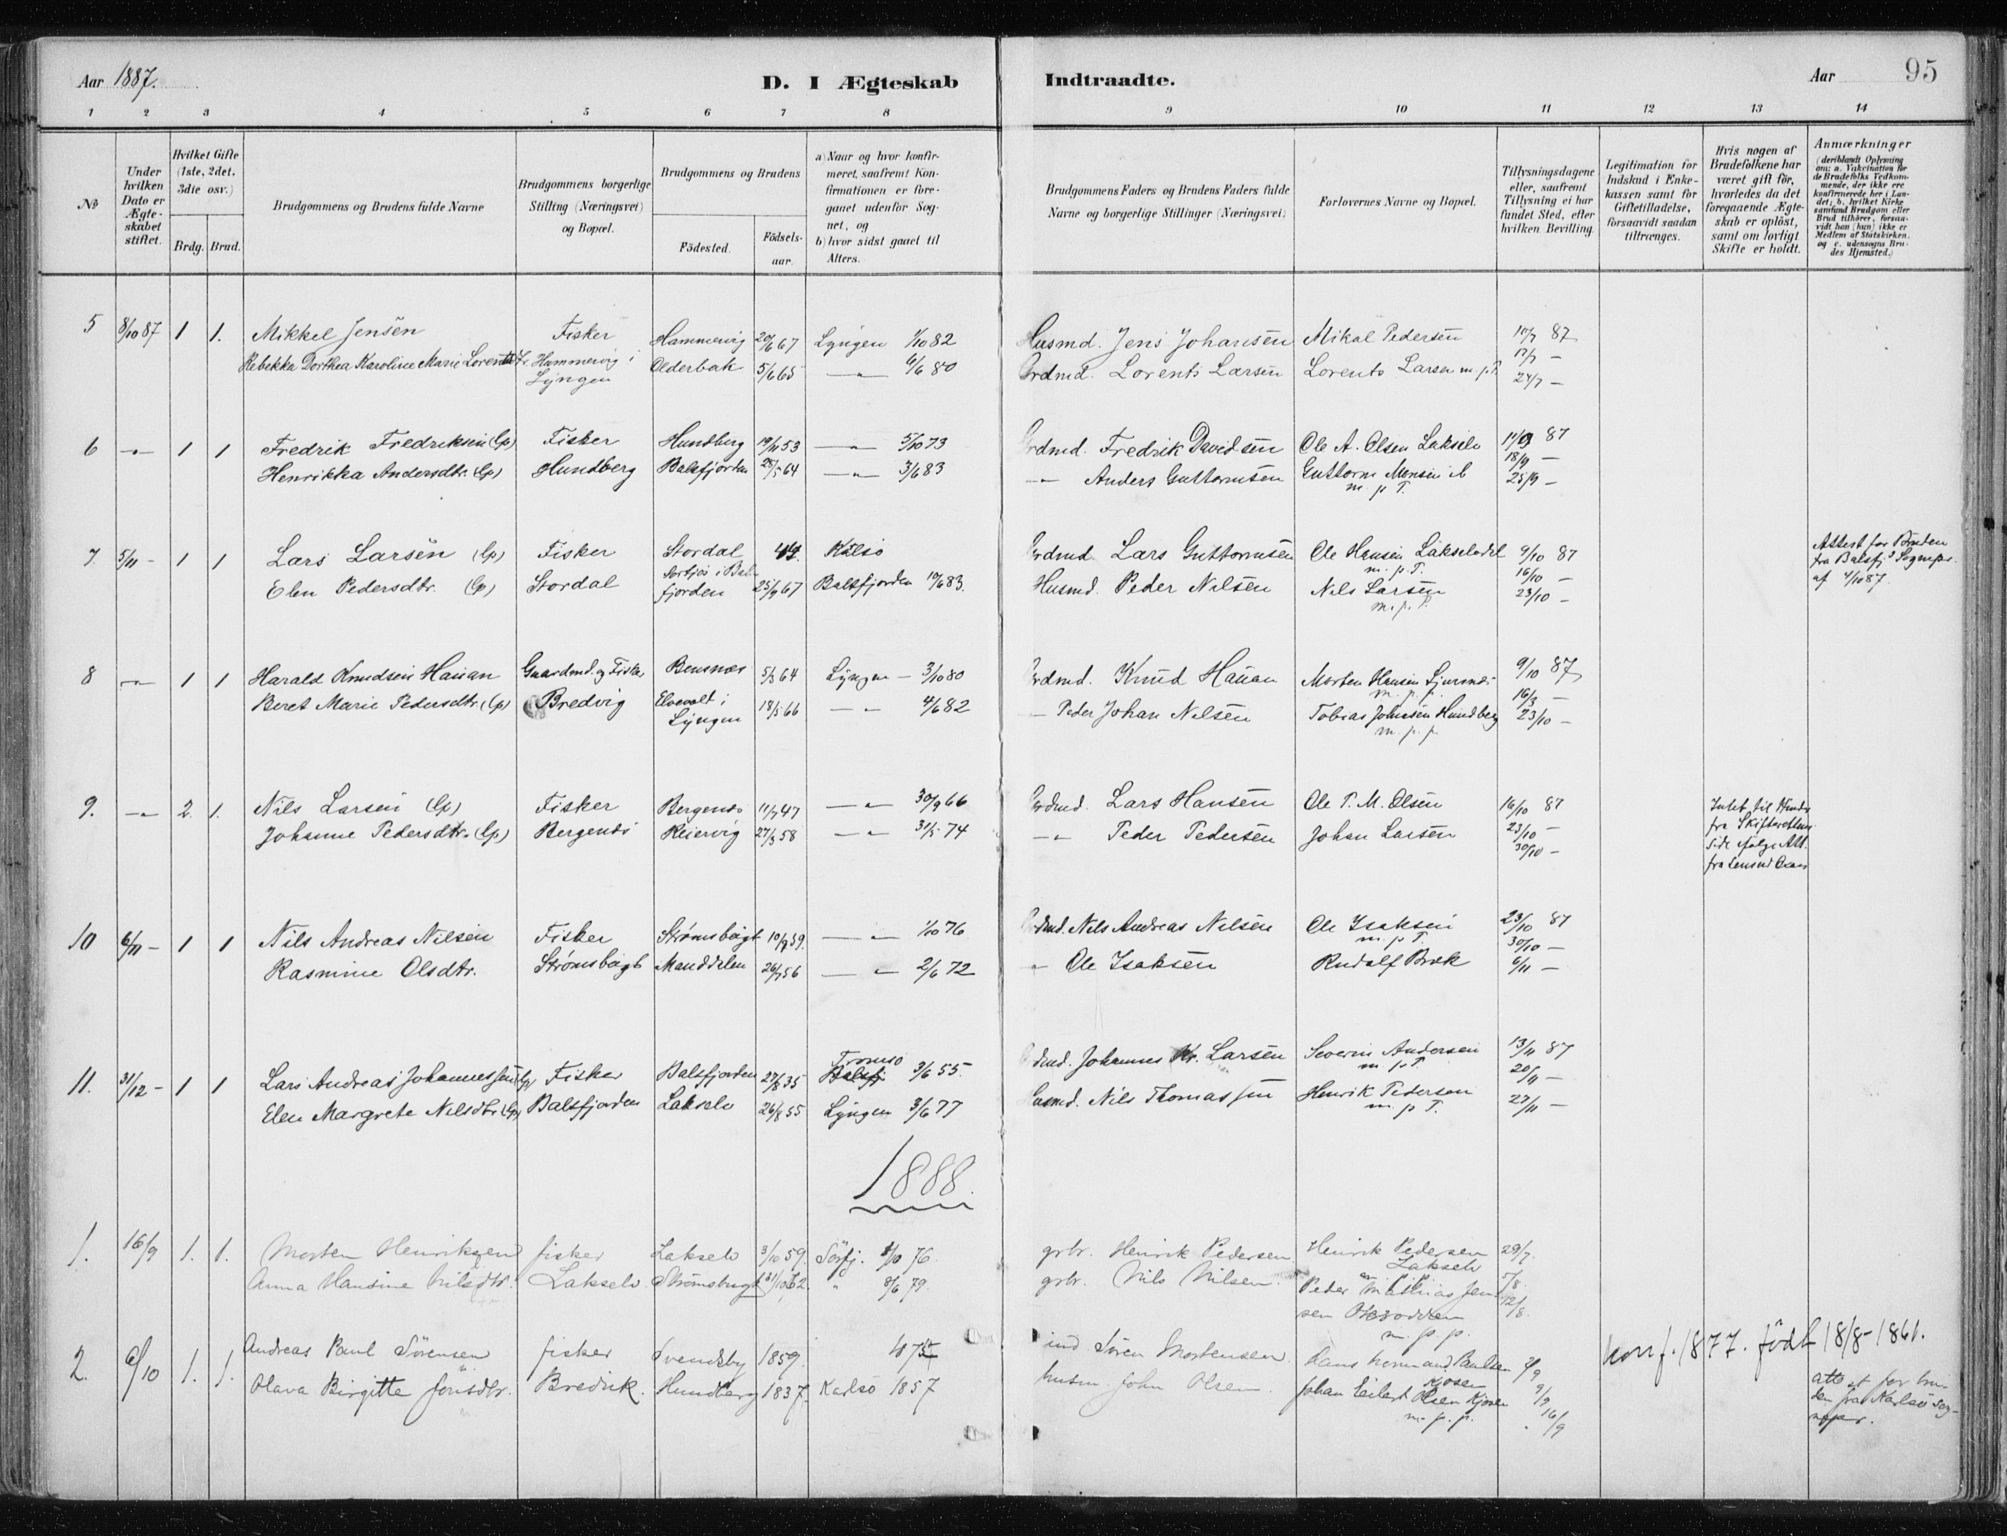 Aar 1887. D. I Ægteskab Indtraadte. Aar 95
1 2 3 4 5 6 7 8 9 10 11 12 13 14
No
Under hvilken Dato er Ægteskabet stiftet.
Hvilket Gifte (1ste, 2det, 3die osv.)
Brdg. Brud.
Brudgommens og Brudens fulde Navne
Brudgommens borgerlige Stilling (Næringsvei) og Bopæl.
Brudgommens og Brudens
Födested. Födsels-aar.
a) Naar og hvor konfirmeret, saafremt Konfirmationen er foregaaet udenfor Sognet, og
b) hvor sidst gaaet til Alters.
Brudgommens Faders og Brudens Faders fulde Navne og borgerlige Stillinger (Næringsvei)
Forlovernes Navne og Bopæl.
Tillysningsdagene eller, saafremt Tillysning ei har fundet Sted, efter hvilken Bevilling.
Legitimation for Indskud i Enkekassen samt for Giftetilladelse, forsaavidt saadan tiltrænges.
Hvis nogen af Brudefolkene har været gift för, hvorledes da det foregaaende Ægteskab er oplöst, samt om lovligt Skifte er holdt.
Anmærkninger (deriblandt Oplysning om: a. Vakcination for de Brudefolks Vedkommende, der ikke ere konfirmerede her i Landet; b. hvilket Kirkesamfund Brudgom eller Brud tilhörer, forsaavidt han (hun) ikke er Medlem af Statskirken, og c. udensogns Brudes Hjemsted.)
5 8/10 87 1 1. Mikkel Jensen Fisker Hammervig 20/6 67 Lyngen 1/10 82 Husmd. Jens Johansen Mikal Pedersen 10/7 87
Rebekka Dorthea Karoline Marie Lorentsdtr. Hammervig i Olderbak 5/6 65 — " — 6/6 80 Grdmd. Lorents Larsen Lorents Larsen m. p. T. 17/7 —
Lyngen 24/7 —
6 — " — 1 1 Fredrik Fredriksen (Lp) Fisker Hundberg 19/11 53 — " — 5/10 73 Grdmd. Fredrik Davidsen Ole A. Olsen Lakselv 11/9 87
Henrikka Andersdtr. (Lp) Hundberg Balsfjorden 28/5 64 — " — 3/6 83 — " — Anders Guttormsen Guttorm Monsen ib 18/9 —
m. p T. 25/9 —
7 5/11 — 1 1 Lars Larsen (Lp) Fisker Stordal 44. Karlsö Grdmd. Lars Guttormsen Ole Hansen Lakselvdal 9/10 87 Attest for Bruden
m. p. T. 16/10 — fra Balsfj.
Elen Pedersdtr. (Lp) Stordal i Balsfjorden 25/9 67 Balsfjorden 10/6 83. Husmd. Peder Nilsen Nils Larsen 23/10 — af 4/10 87.
m. p. T.
8 — " — 1 1 Harald Knudsen Hauan Gaardmd. og Fisker Bensnæs 5/3 64 Lyngen — 3/10 80 Grdmd. Knud Hauan Morten Hansen 9/10 87
m. p. p. 16/3 —
Beret Marie Pedersdtr. (Lp) Bredvig Elvevolt i 18/5 66 — " — 4/6 82 — Peder Johan Nilsen Tobias Johnsen Hundberg 23/10 —
Lyngen m. p. p
9. — " — 2. 1. Nils Larsen (Lp) Fisker Bergenes 11/7 47 — " — 30/9 66 Grdmd. Lars Hansen Ole P. M. Olsen 16/10 87 Intet til Hinder
Johanne Pedersdtr. (Lp) Bergenes Reiervig 27/3 58 — " — 31/5 74 — " — Peder Pedersen Johan Larsen 23/10 — fra Skifterettens
30/10 — Side ifølge Att.
fra Lensmd
10 6/11 — 1 1 Nils Andreas Nilsen Fisker Strømsbugt 10/9 59. — " — 1/10 76 Grdmd. Nils Andreas Nilsen Ole Isaksen 23/10 87
m. p T. 30/10 —
Rasmine Olsdtr. Strømsbugt Manddelen 26/7 56 — " — 2/6 72 " Ole Isaksen Rudolf Brek 6/11 —
11. 31/12 — 1 1 Lars Andreas Johannessen (Lp) Fisker Balsfjorden 27/8 35 Tromsö Balsfj. 3/6 55. Grdmd. Johannes Kr. Larsen Severin Andersen 13/11 87
m. p T. 20/11 —
Elen Margrete Nilsdtr (Lp) Balsfjorden Lakselv 26/8 55 Lyngen 3/6 77 Husmd. Nils Thomassen Henrik Pedersen 27/11 —
m. p T.
1888.
1. 16/9 1. 1. Morten Henriksen fisker Lakselv 3/10 59. Sörfj. 8/10 76. grbr. Henrik Pedersen Henrik Pedersen 29/7.
Lakselv
Anna Hansine Nilsdtr. Lakselv Strømsbugt 31/10 62. " 8/6 79. grbr. Nils Nilsen. Peder Mathias Jen- 5/8.
sen Oksvodden 12/8.
m. p. p.
2. 6/10 1. 1. Andreas Paul Sörensen fisker Svendsby 1859. 1875 ind Sören Mortensen. Hans Normand Paulsen 2/9 konf. 1877. född 18/8-1861.
Kjosen
Olava Birgitte Jonsdtr. Bredvik. Hundberg 1837. Karlsö 1857 husm. John Olsen. Johan Eilert Olsen Kjosen 9/9 attest for bru-
m. p. p. 16/9 den fra Karlsö sog-
nepr.